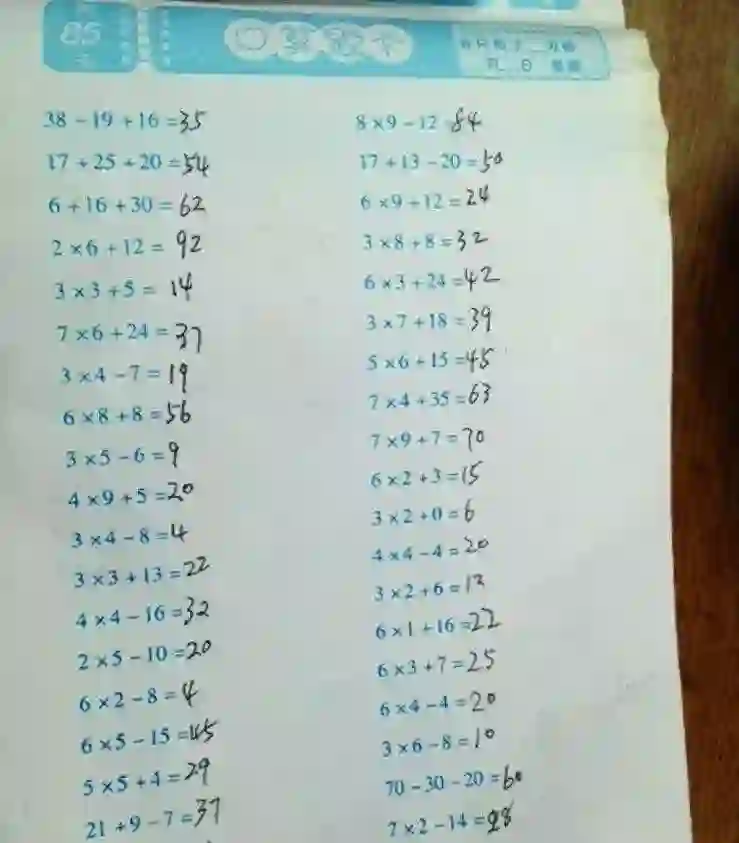 85
口算题卡
38 - 19 + 16 = 35
17 + 25 + 20 = 54
6 + 16 + 30 = 62
2 × 6 + 12 = 92
3 × 3 + 5 = 14
7 × 6 + 24 = 37
3 × 4 - 7 = 19
6 × 8 + 8 = 56
3 × 5 - 6 = 9
4 × 9 + 5 = 20
3 × 4 - 8 = 4
3 × 3 + 13 = 22
4 × 4 - 16 = 32
2 × 5 - 10 = 20
6 × 2 - 8 = 4
6 × 5 - 15 = 45
5 × 5 + 4 = 29
21 + 9 - 7 = 37
8 × 9 - 12 = 84
17 + 13 - 20 = 50
6 × 9 + 12 = 24
3 × 8 + 8 = 32
6 × 3 + 24 = 42
3 × 7 + 18 = 39
5 × 6 + 15 = 45
7 × 4 + 35 = 63
7 × 9 + 7 = 70
6 × 2 + 3 = 15
3 × 2 + 0 = 6
4 × 4 - 4 = 20
3 × 2 + 6 = 12
6 × 1 + 16 = 22
6 × 3 + 7 = 25
6 × 4 - 4 = 20
3 × 6 - 8 = 10
70 - 30 - 20 = 60
7 × 2 - 14 = 28